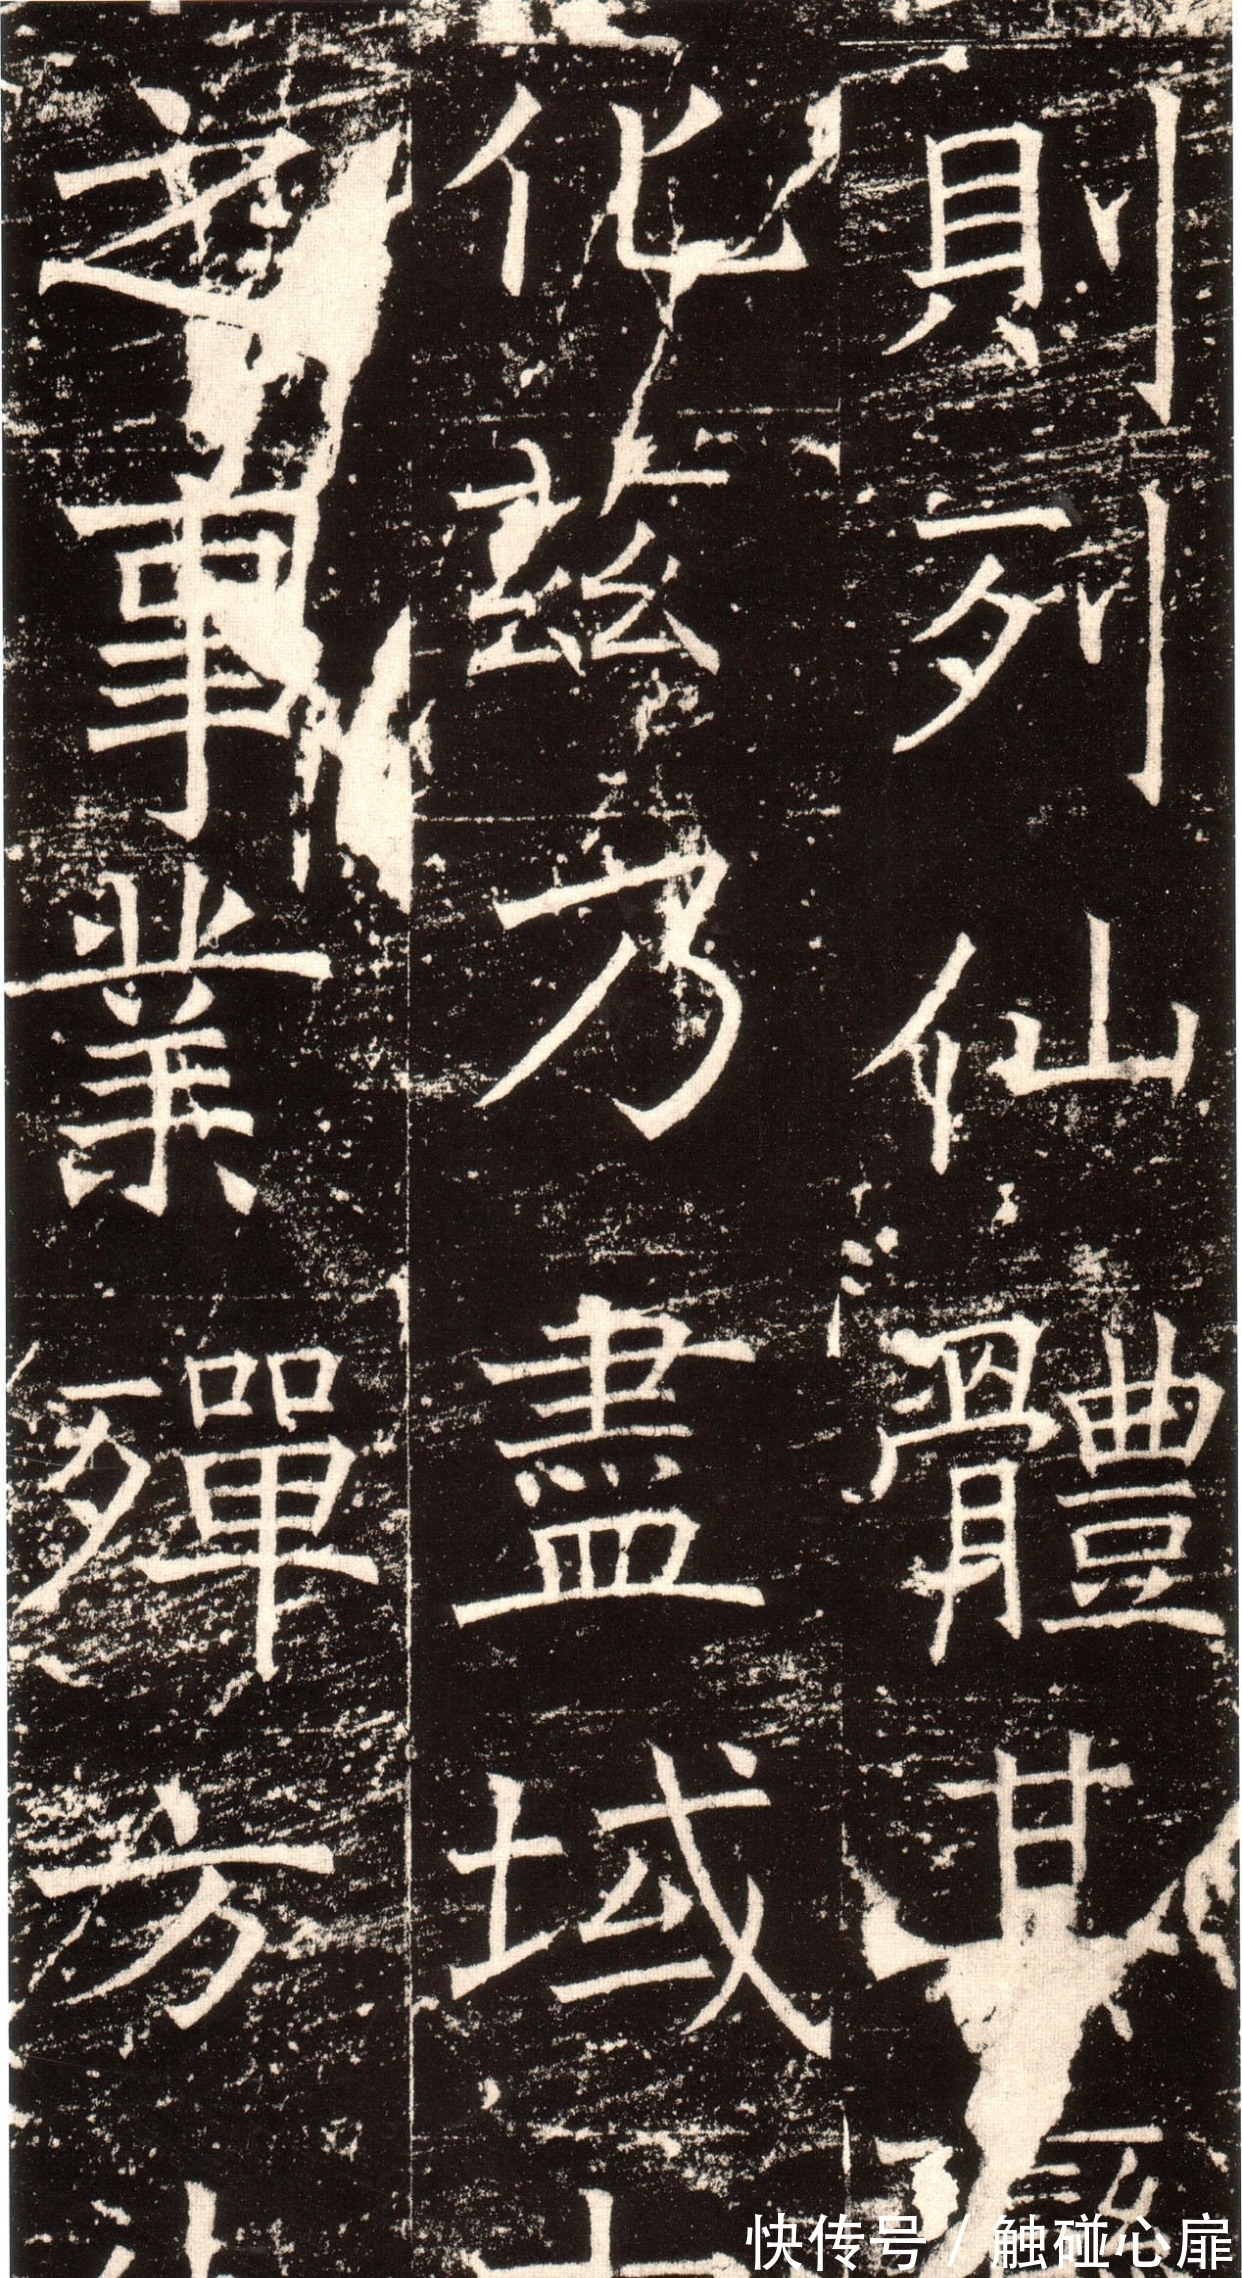 則列仙體甘
化茲乃盡域
之事業殫芳
快传号 / 触碰心扉